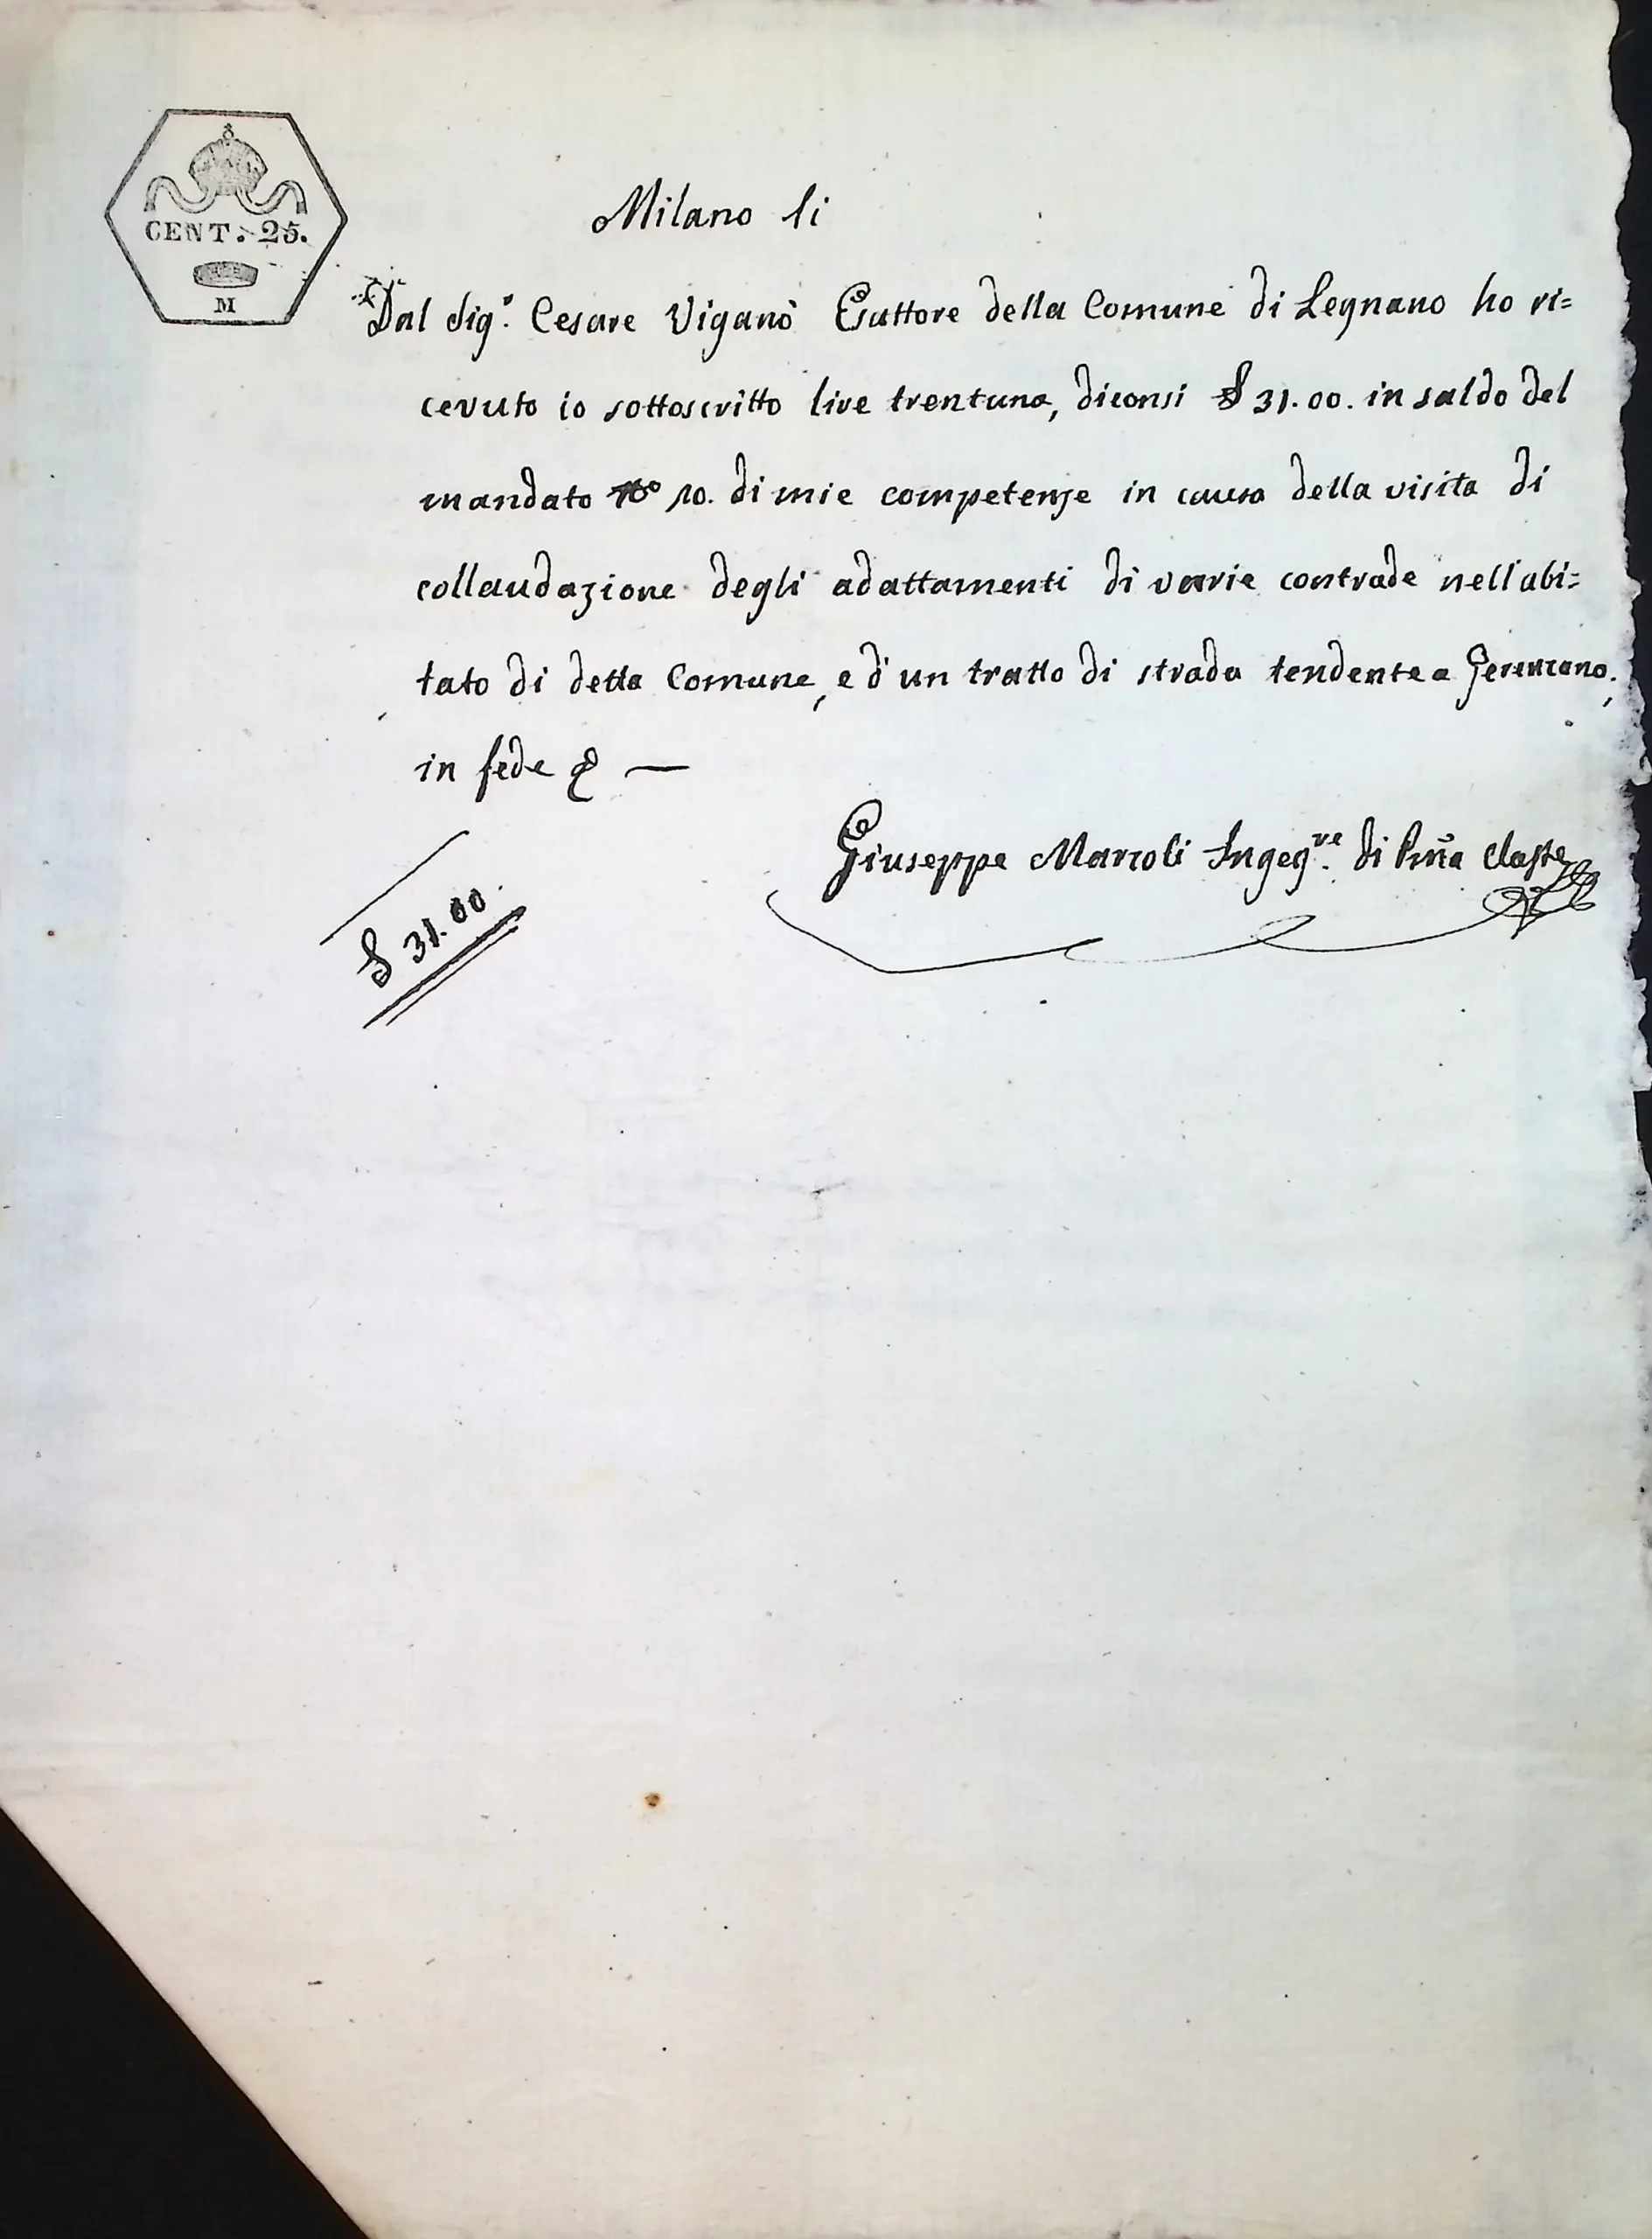 CENT. 25.
M
Milano li
Dal Sig.r Cesare Viganò Esattore della Comune di Legnano ho ri=
cevuto io sottoscritto lire trentuna, diconsi £ 31.00. in saldo del
mandato N.o 10. di mie competenze in causa della visita di
collaudazione degli adattamenti di varie contrade nell'abi=
tato di detta Comune, e d'un tratto di strada tendente a Gerenzano;
in fede
Giuseppe Ingeg.re di Prima Classe
£ 31.00.